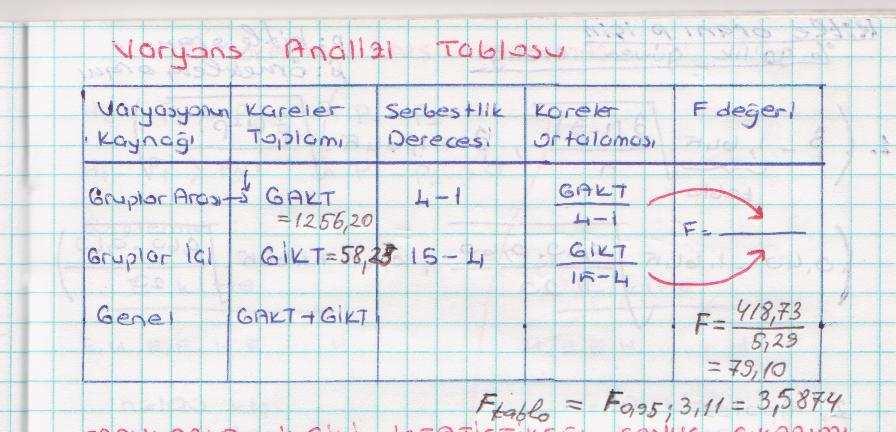 Varyans Analizi Tablosu
Varyasyonun Kaynağı
Kareler Toplamı
Serbestlik Derecesi
Kareler Ortalaması
F değeri
Gruplar Arası
GAKT
=1256,20
4-1
GAKT
4-1
F=
Gruplar İçi
GİKT=58,25
15-4
GİKT
15-4
Genel
GAKT+GİKT
F=418,73
5,29
=79,10
Ftablo = F0,95;3,11 = 3,5874